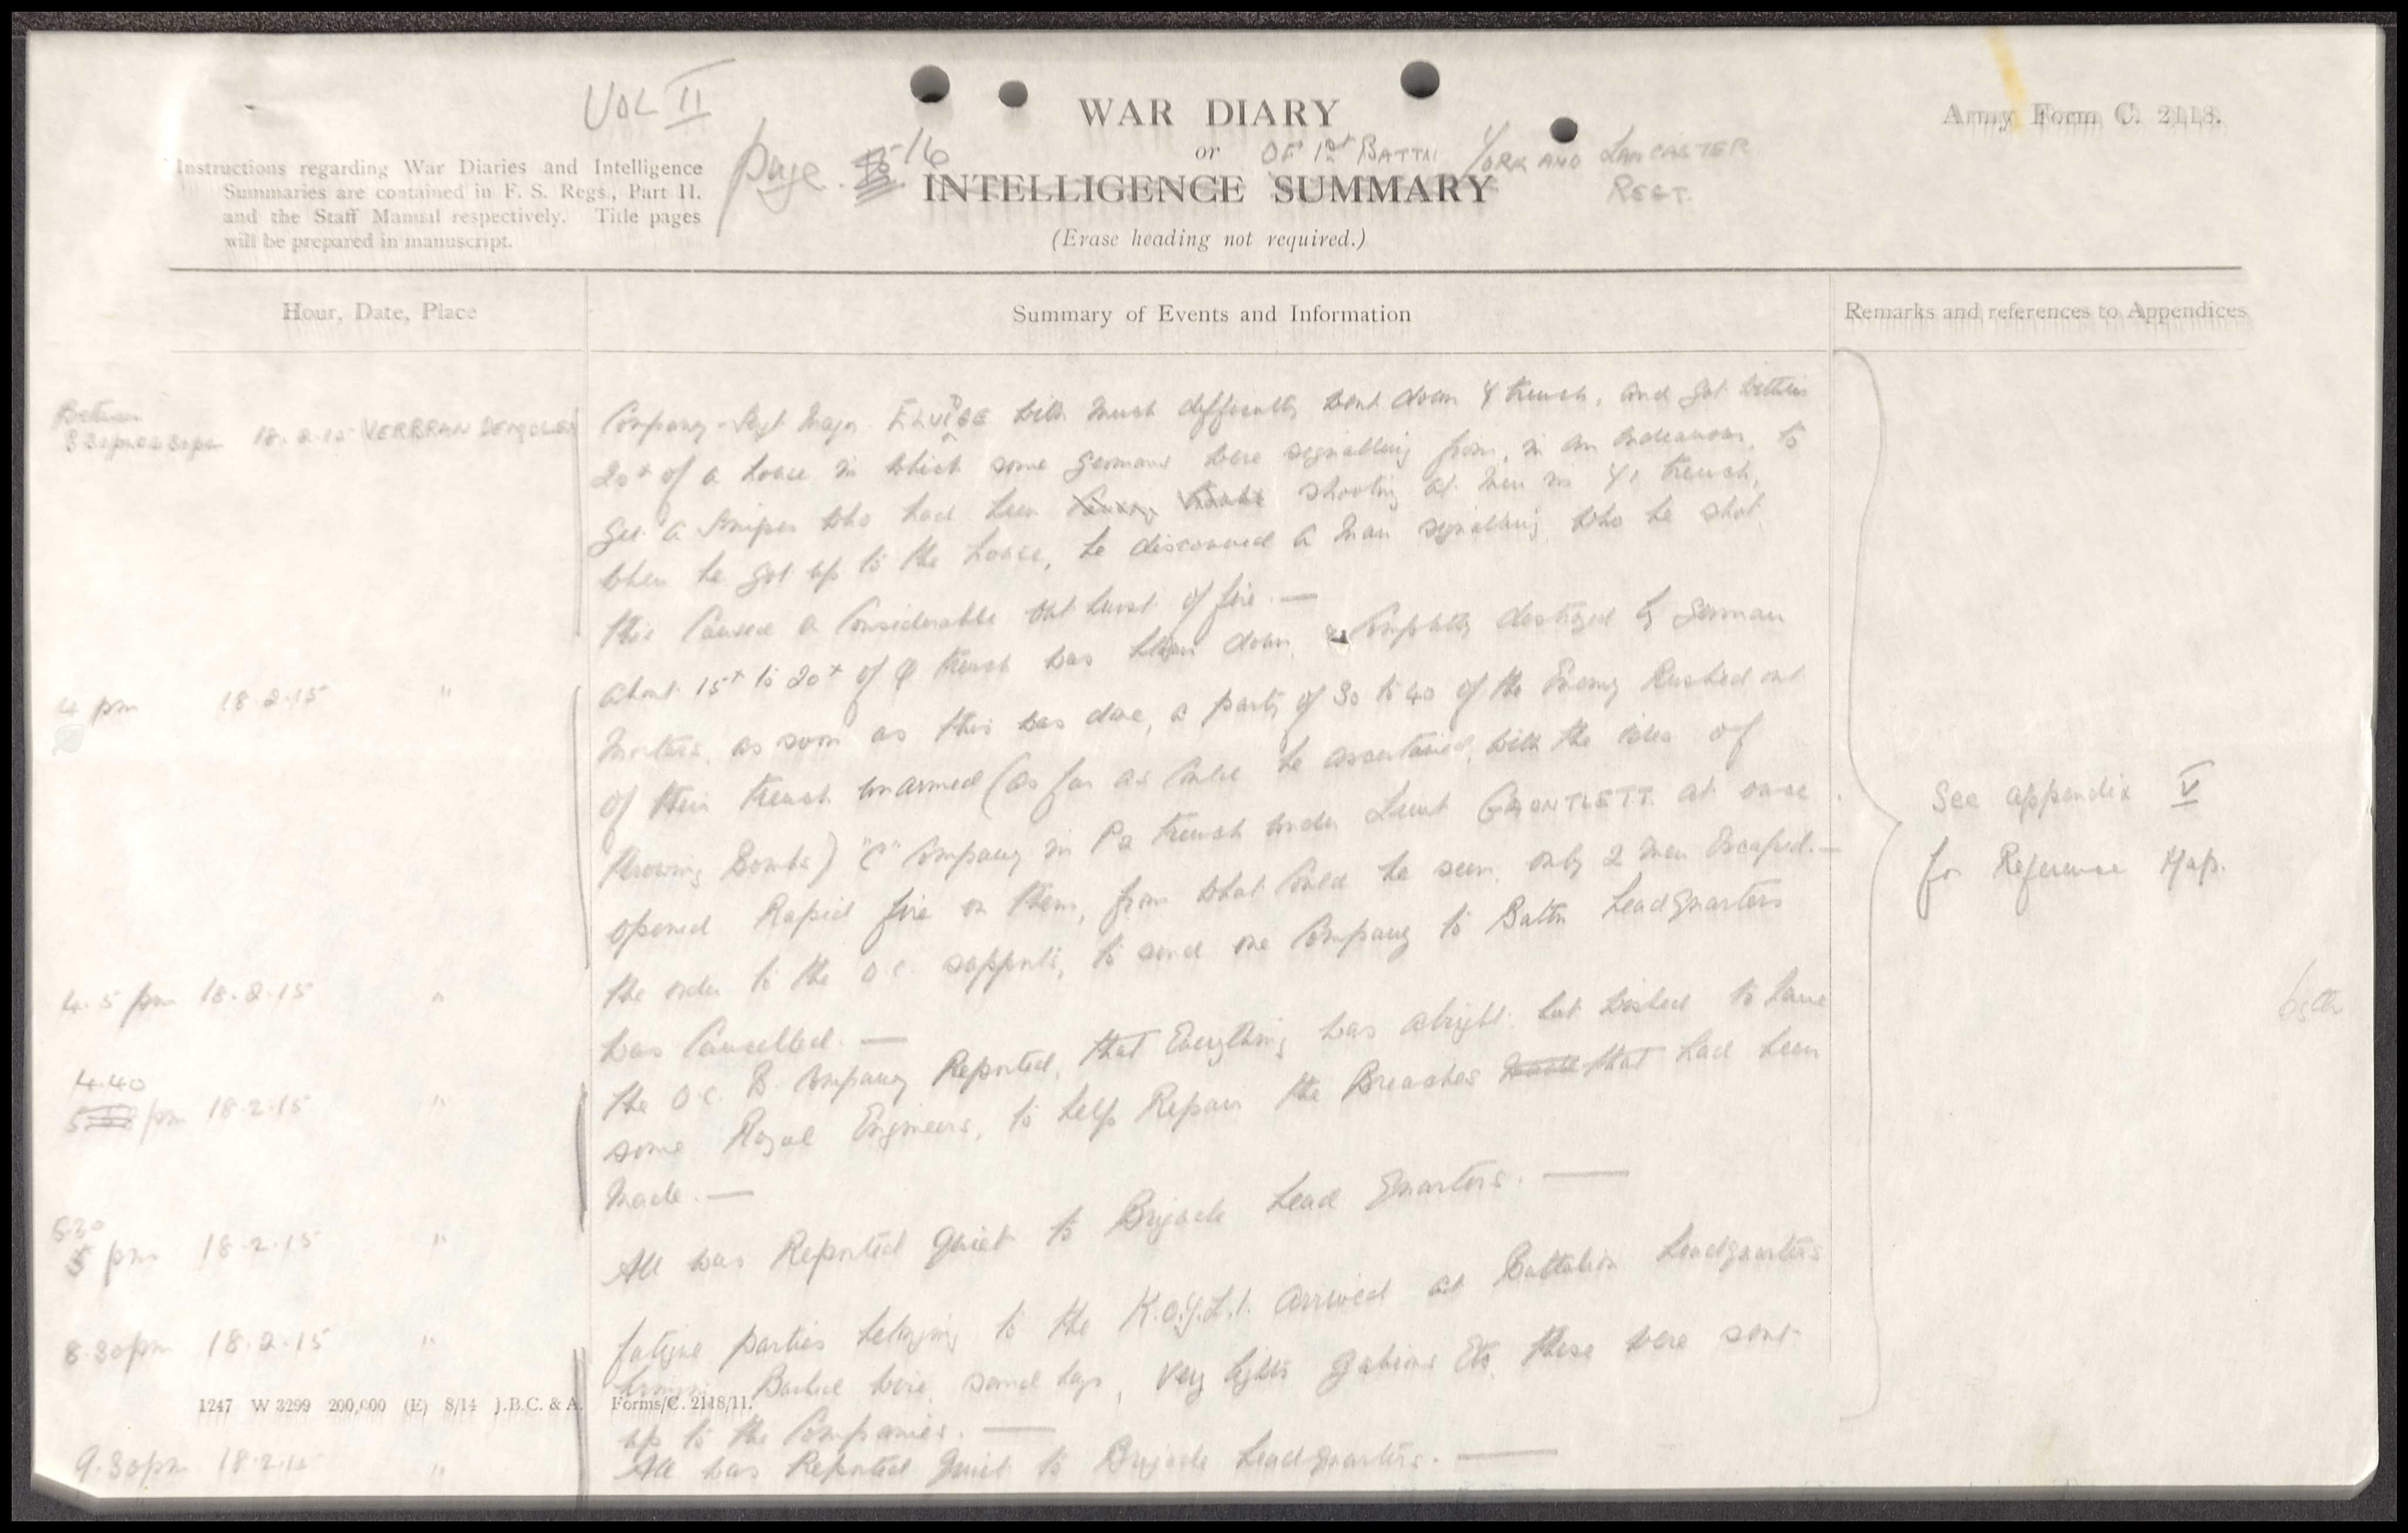 VOL II
WAR DIARY
Army Form C. 2118.
page 16
or OF 1st BATTN YORK AND LANCASTER
REGT.
INTELLIGENCE SUMMARY
(Erase heading not required.)
Instructions regarding War Diaries and Intelligence
Summaries are contained in F. S. Regs., Part II.
and the Staff Manual respectively. Title pages
will be prepared in manuscript.
Hour, Date, Place
Summary of Events and Information
Remarks and references to Appendices
Between
3.30pm & 4.30pm 18.2.15 VERBRAN
Company-Sergt Major with much difficulty went down Y trench, and got within
20x of a house in which some Germans were signalling from, in an endeavour, to
get a Sniper who had been shooting at Men in Y1 trench,
when he got up to the house, he discovered a Man signalling who he shot
this caused a Considerable out burst of fire. —
4 pm 18.2.15 "
about 15x to 20x of trench was blown down & Completely destroyed by German
Mortars, as soon as this was done, a party of 30 to 40 of the Enemy Rushed out
of their trench unarmed (as far as Could be ascertained, with the idea of
throwing Bombs) "C" Company in trench under Lieut GAUNTLETT at once
opened Rapid fire on them, from what Could be seen, only 2 Men Escaped. —
4.5 pm 18.2.15 "
the order to the O.C. supports, to send one Company to Battn Headquarters
was Cancelled. —
4.40
pm 18.2.15 "
the O.C. B. Company Reported, that Everything was alright but wished to have
some Royal Engineers, to help Repair the Breaches that had been
Made. —
5.30
pm 18.2.15 "
All was Reported Quiet to Brigade Head Quarters. —
8.30pm 18.2.15 "
fatigue parties belonging to the K.O.Y.L.I. arrived at Battalion Headquarters
Barbed wire, sand bags, Very lights gabions Etc, these were sent
up to the Companies. —
9.30pm 18.2.15 "
All was Reported Quiet to Brigade Headquarters. —
See appendix V
for Reference Map.
1247 W 3299 200,000 (E) 8/14 J.B.C. & A. Forms/C. 2118/11.